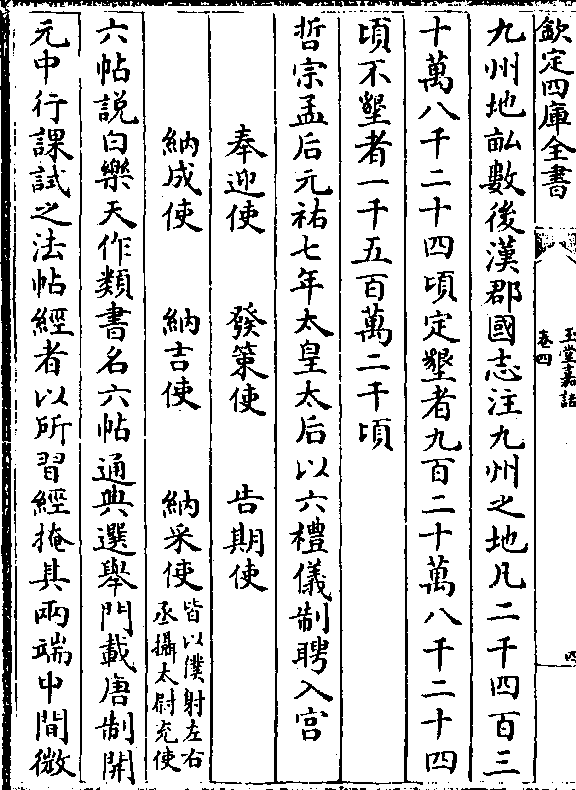 欽定四庫全書
玉堂嘉話
卷四
四
九州地畝數後漢郡國志注九州之地凡二千四百三
十萬八千二十四頃定墾者九百二十萬八千二十四
頃不墾者一千五百萬二千頃
哲宗孟后元祐七年太皇太后以六禮儀制聘入宫
奉迎使 發策使 告期使
納成使 納吉使 納采使皆以僕射左右
丞攝太尉充使
六帖説白樂天作類書名六帖通典選舉門載唐制開
元中行課試之法帖經者以所習經掩其兩端中間微